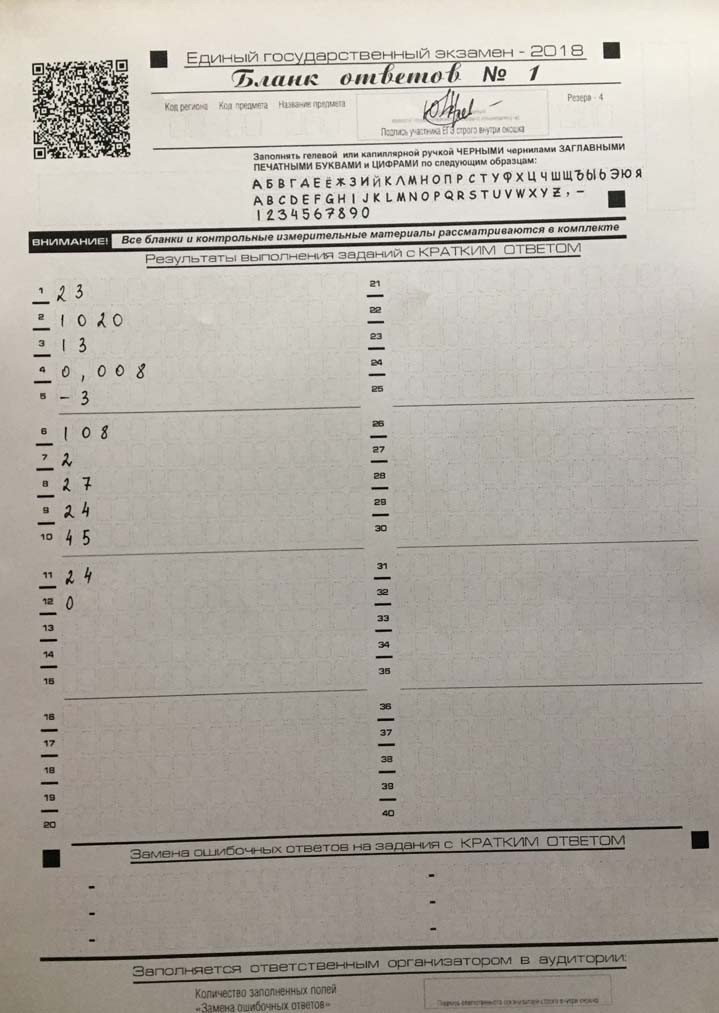 Единый государственный экзамен - 2018
Бланк ответов № 1
Код региона Код предмета Название предмета
Резерв - 4
Подпись участника ЕГЭ строго внутри окошка
Заполнять гелевой или капиллярной ручкой ЧЕРНЫМИ чернилами ЗАГЛАВНЫМИ
ПЕЧАТНЫМИ БУКВАМИ и ЦИФРАМИ по следующим образцам:
АБВГДЕЁЖЗИЙКЛМНОПРСТУФХЦЧШЩЪЫЬЭЮЯ
ABCDEFGHIJKLMNOPQRSTUVWXYZ,-
1234567890
ВНИМАНИЕ! Все бланки и контрольные измерительные материалы рассматриваются в комплекте
Результаты выполнения заданий с КРАТКИМ ОТВЕТОМ
1 23 21
2 1020 22
3 13 23
4 0,008 24
5 -3 25
6 108 26
7 2 27
8 27 28
9 24 29
10 45 30
11 24 31
12 0 32
13 33
14 34
15 35
16 36
17 37
18 38
19 39
20 40
Замена ошибочных ответов на задания с КРАТКИМ ОТВЕТОМ
- -
- -
- -
Заполняется ответственным организатором в аудитории:
Количество заполненных полей
«Замена ошибочных ответов»
Подпись ответственного организатора строго внутри окошка